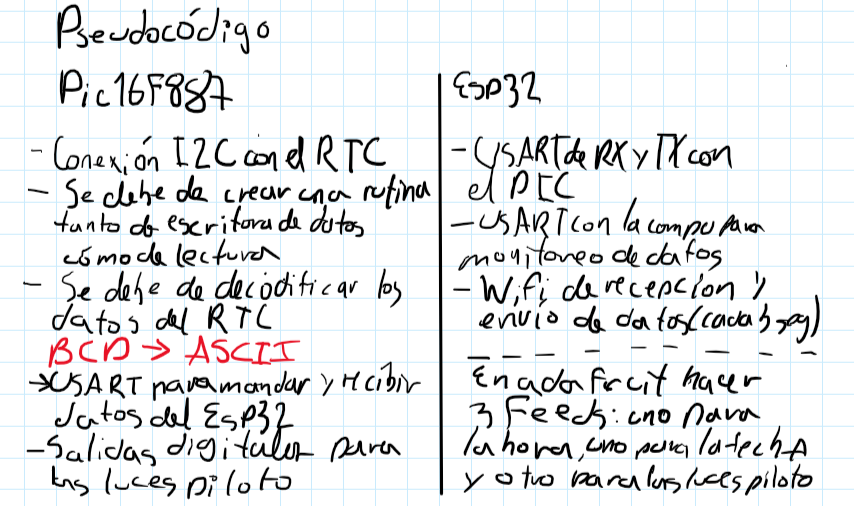 Pseudocódigo
Pic16F887
- Conexión I2C con el RTC
- Se debe de crear una rutina
tanto de escritora de datos
cómo de lectura
- Se debe de decodificar los
datos del RTC
BCD → ASCII
→ USART para mandar y recibir
datos del Esp32
- Salidas digitales para
las luces piloto
Esp32
- USART de RX y TX con
el PIC
- USART con la compu para
monitoreo de datos
- Wifi de recepción y
envío de datos (cada 3 seg)
En adafruit hacer
3 Feeds: uno para
la hora, uno para la fecha
y otro para las luces piloto